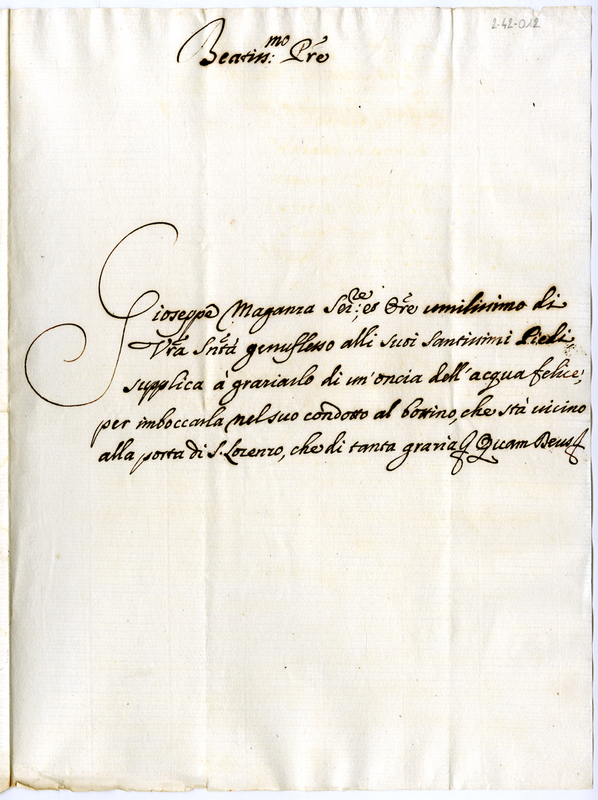 2-42-012
Beatiss:mo Pre
Gioseppe Maganza Ser:re et Ore umilissimo di
Vra Sntà genuflesso alli suoi Santissimi Piedi
supplica à graziarlo di un'oncia dell'acqua felice,
per imboccarla nel suo condotto al bottino, che stà vicino
alla porta di S. Lorenzo, che di tanta grazia Quam Deus